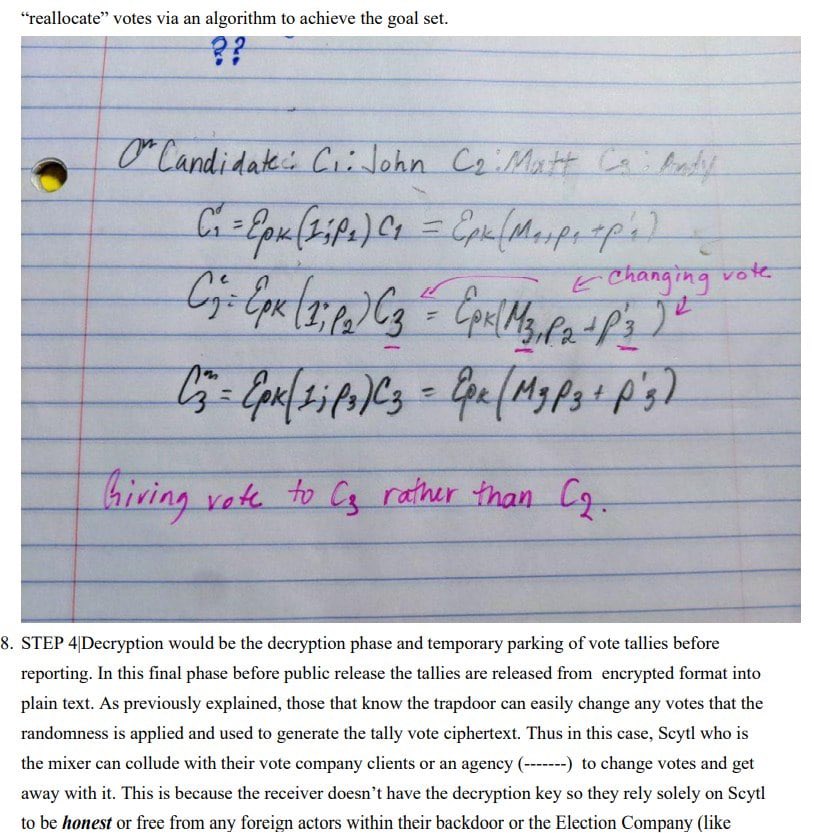 “reallocate” votes via an algorithm to achieve the goal set.
??
Candidate: C₁: John C₂: Matt C₃: Andy
= Epk(1;ρ₁) C₁ = Epk(M₁,ρ₁ + ρ'₁)
← changing vote
= Epk(1;ρ₂) C₃ = Epk(M₃,ρ₂ + ρ'₃)
= Epk(1;ρ₃)C₃ = Epk(M₃ρ₃ + ρ'₃)
Giving vote to C₃ rather than C₂.
8. STEP 4|Decryption would be the decryption phase and temporary parking of vote tallies before
reporting. In this final phase before public release the tallies are released from encrypted format into
plain text. As previously explained, those that know the trapdoor can easily change any votes that the
randomness is applied and used to generate the tally vote ciphertext. Thus in this case, Scytl who is
the mixer can collude with their vote company clients or an agency (-------) to change votes and get
away with it. This is because the receiver doesn’t have the decryption key so they rely solely on Scytl
to be honest or free from any foreign actors within their backdoor or the Election Company (like